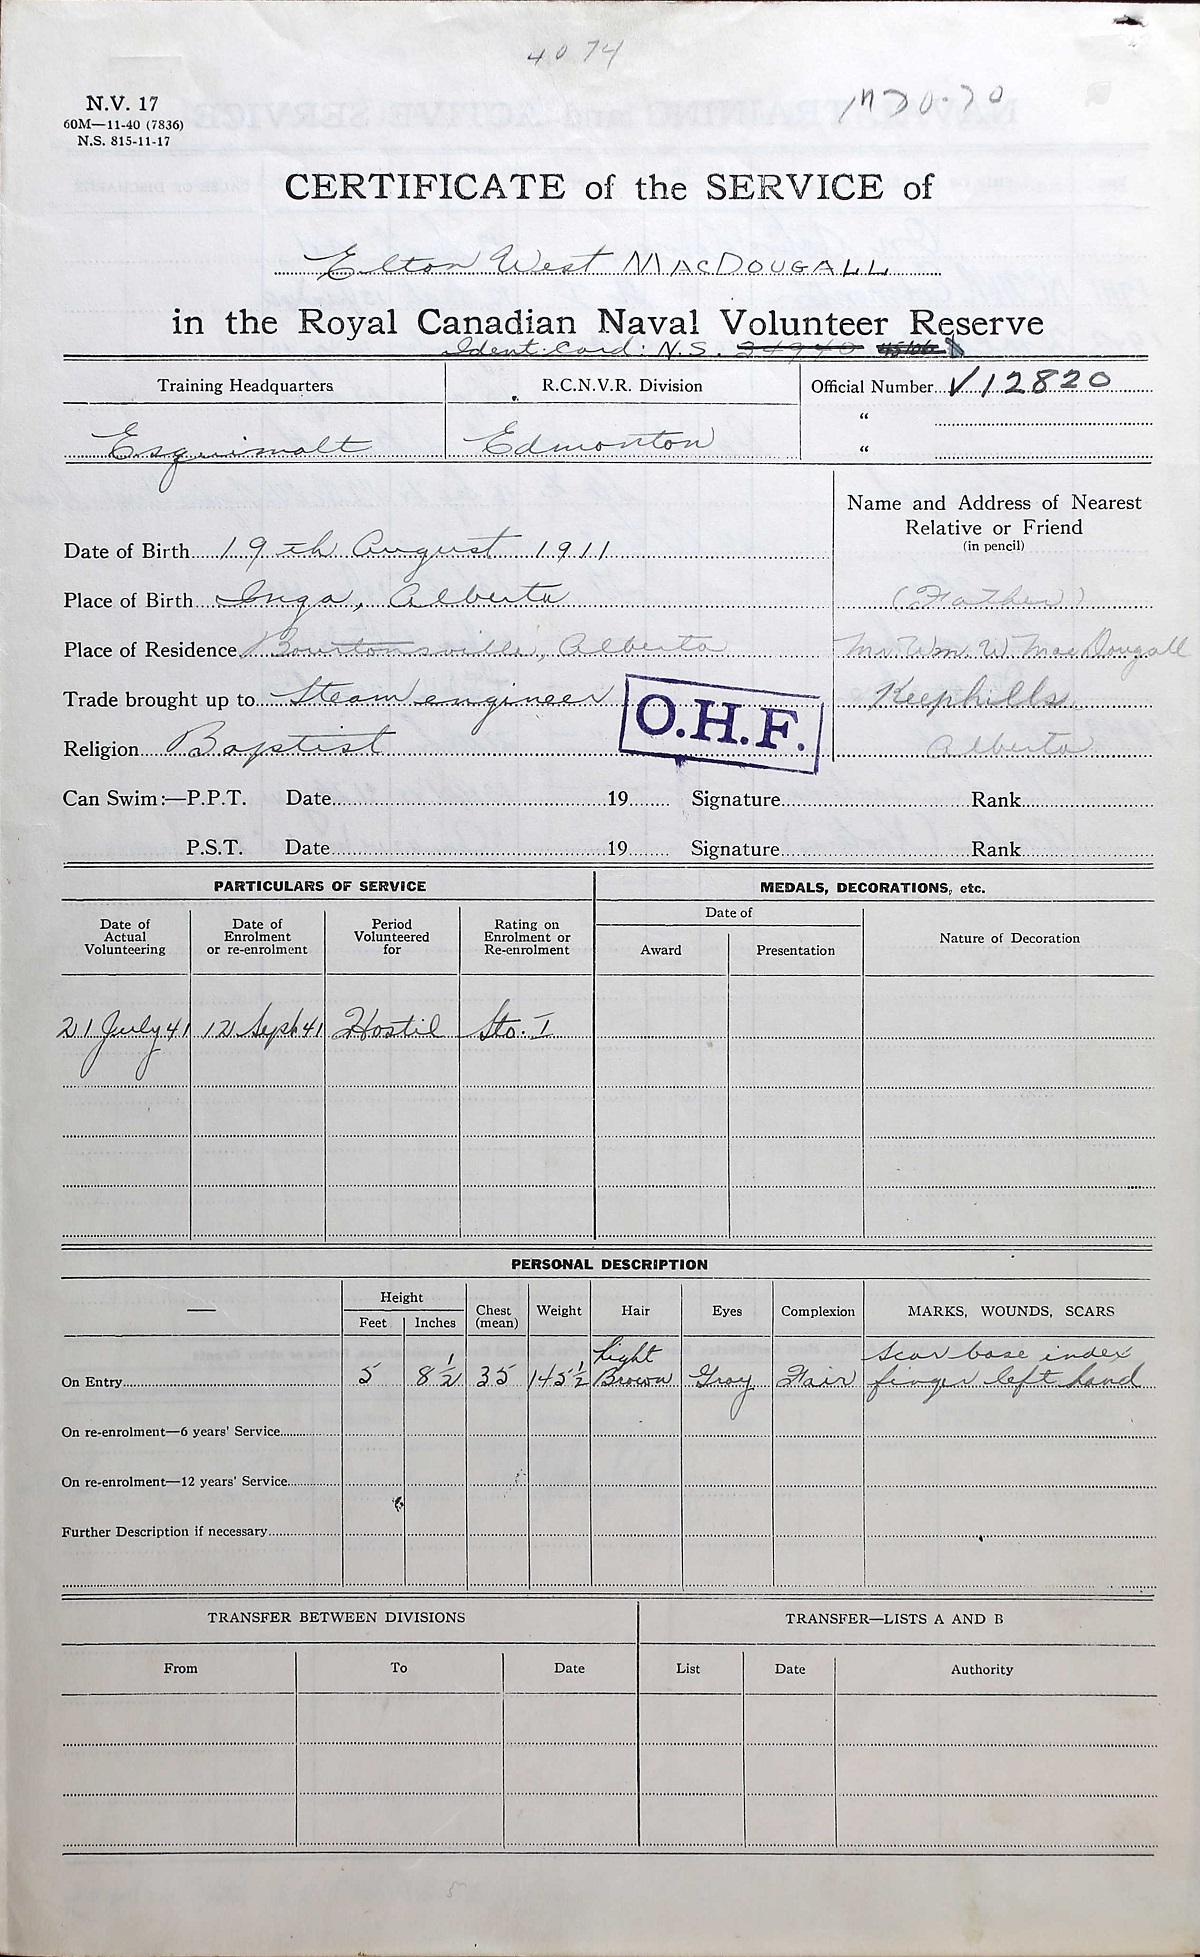 4074
N.V. 17
60M—11-40 (7836)
N.S. 815-11-17
CERTIFICATE of the SERVICE of
Elton West MACDOUGALL
in the Royal Canadian Naval Volunteer Reserve
Ident. Card: N.S. 34940
Training Headquarters R.C.N.V.R. Division Official Number V12820
“
Esquimalt Edmonton “
Name and Address of Nearest
Relative or Friend
(in pencil)
Date of Birth 19th August 1911
Place of Birth Inga, Alberta (Father)
Place of Residence Bourtonsville, Alberta Mr. Wm. W. MacDougall
Trade brought up to Steam engineer Keephills
Religion Baptist Alberta
O.H.F.
Can Swim:—P.P.T. Date 19 Signature Rank
P.S.T. Date 19 Signature Rank
PARTICULARS OF SERVICE MEDALS, DECORATIONS, etc.
Date of Actual Volunteering Date of Enrolment or re-enrolment Period Volunteered for Rating on Enrolment or Re-enrolment Date of
Award Presentation Nature of Decoration
21 July 41 12 Sept 41 Hostil Sto. I
PERSONAL DESCRIPTION
— Height Chest (mean) Weight Hair Eyes Complexion MARKS, WOUNDS, SCARS
Feet Inches
On Entry 5 8½ 35 145½ Light Brown Gray Fair Scar base index finger left hand
On re-enrolment—6 years' Service
On re-enrolment—12 years' Service
Further Description if necessary
TRANSFER BETWEEN DIVISIONS TRANSFER—LISTS A AND B
From To Date List Date Authority